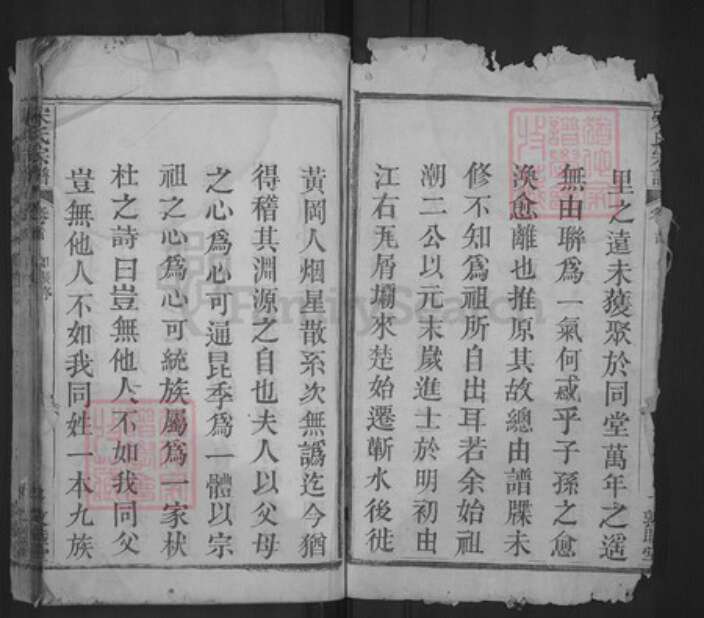 里之遠未獲聚於同堂萬年之遥
無由聯爲一氣何惑乎子孫之愈
渙愈離也推原其故總由譜牒未
修不知爲祖所自出耳若余始祖
潮二公以元末歲進士於明初由
江右瓦屑壩來楚始遷蘄水後徙
黃岡人烟星散系次無譌迄今猶
得稽其淵源之自也夫人以父母
之心爲心可通昆季爲一體以宗
祖之心爲心可統族屬爲一家杕
杜之詩曰豈無他人不如我同父
豈無他人不如我同姓一本九族
氏宗譜
FamilySearch